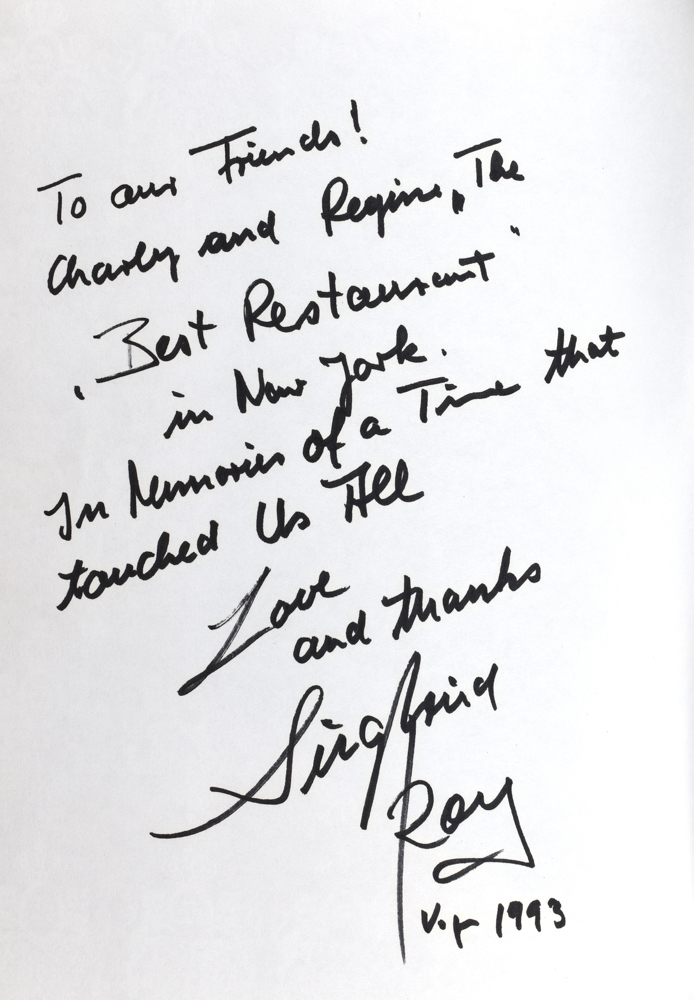 To our Friends!
Charly and Regine „The
"Best Restaurant"
in New York.
In Memories of a Time that
touched Us All
Love
and thanks
Siegfried
Roy
1993